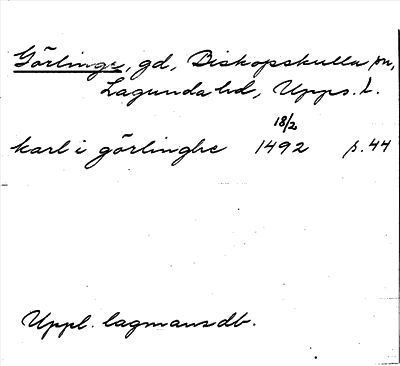 Görlinge, gd, Biskopskulla sn,
Lagunda hd, Upps. l.
18/2
karl i görlinghe 1492 s. 44
Uppl. lagmansdb.